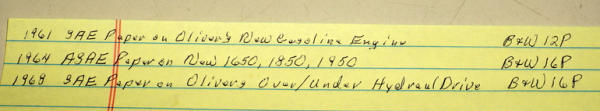 1961 SAE Paper on Oliver's New Gasoline Engine B&W 12P
1964 ASAE Paper on New 1650, 1850, 1950 B&W 16P
1968 SAE Paper on Olivers Over/Under Hydraul Drive B&W 16P